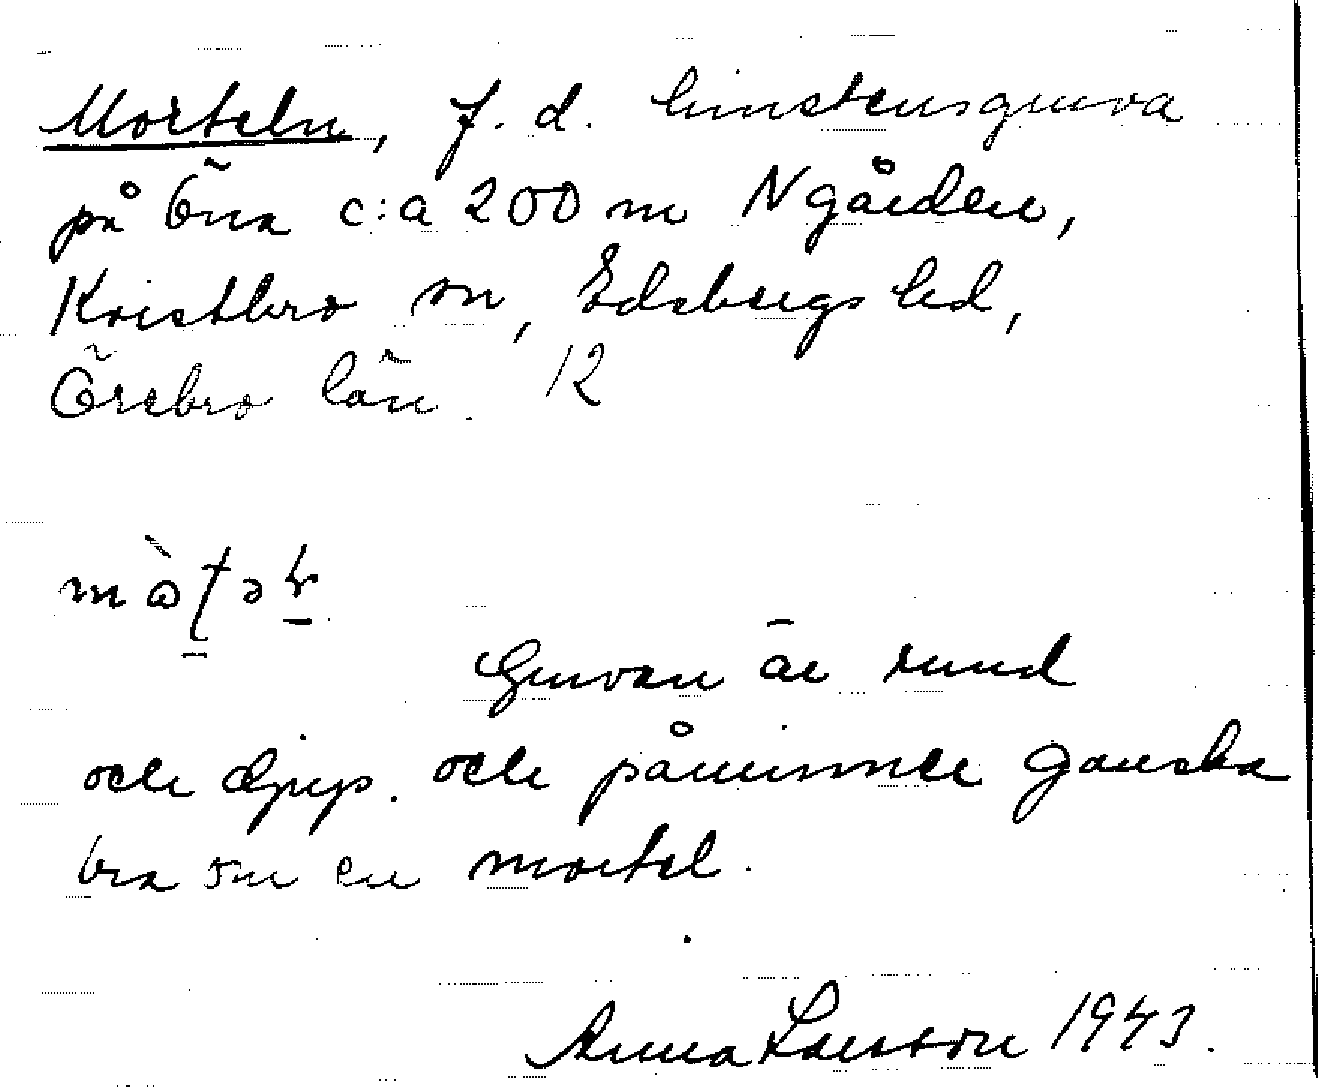 Morteln, f. d. limstensgruva
på Öna c:a 200 m N gården,
Kvistbro sn, Edsbergs hd,
Örebro län. 12
Gruvan är rund
och djup. och påminner ganska
bra om en mortel.
Anna Larsson 1943.